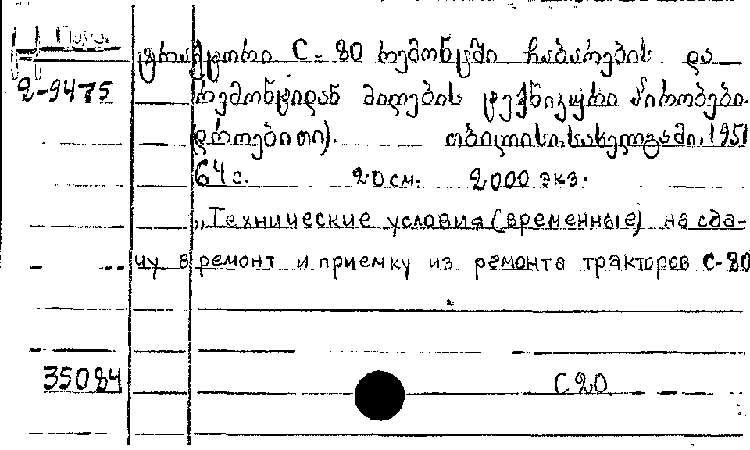 ტრაქტორი С-80 რემონტში ჩაბარების და
2-9475 რემონტიდან მიღების ტექნიკური პირობები.
(დროებითი). თბილისი. სახელგამი. 1951
64 с. 20 см. 2000 экз.
„Технические условия (временные) на сда-
чу в ремонт и приемку из ремонта тракторов С-80
35084 С 20